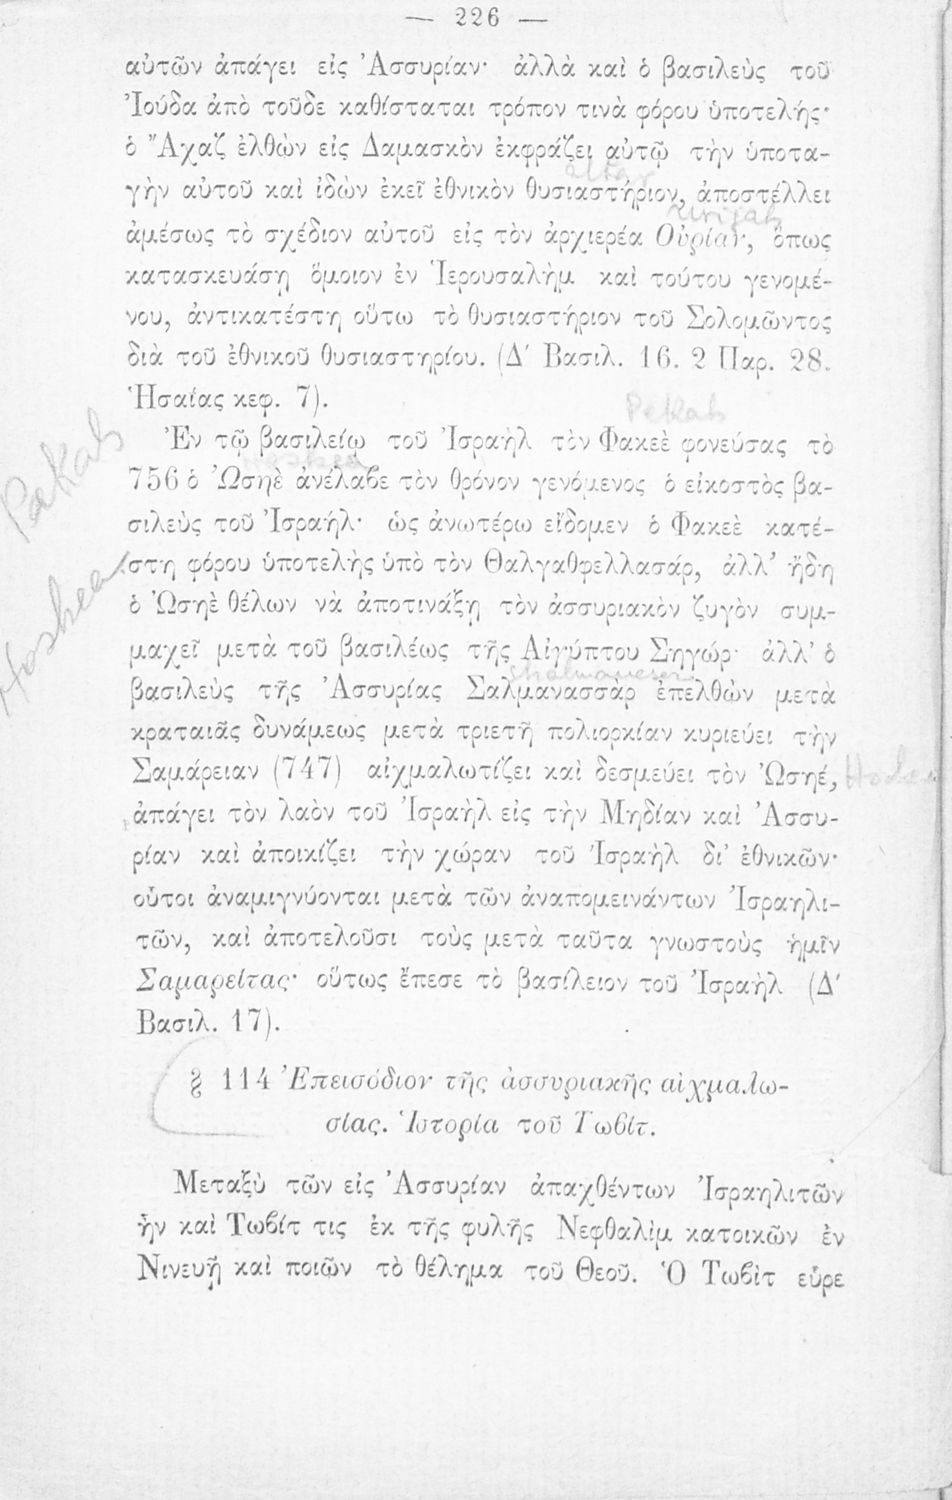 — 226 —
αὐτῶν ἀπάγει εἰς Ἀσσυρίαν· ἀλλὰ καὶ ὁ βασιλεὺς τοῦ
Ἰούδα ἀπὸ τοῦδε καθίσταται τρόπον τινὰ φόρου ὑποτελής·
ὁ Ἄχαζ ἐλθὼν εἰς Δαμασκὸν ἐκφράζει αὐτῷ τὴν ὑποτα-
altar
γὴν αὐτοῦ καὶ ἰδὼν ἐκεῖ ἐθνικὸν θυσιαστήριον, ἀποστέλλει
Urijah
ἀμέσως τὸ σχέδιον αὐτοῦ εἰς τὸν ἀρχιερέα Οὐρίαν, ὅπως
κατασκευάσῃ ὅμοιον ἐν Ἱερουσαλὴμ καὶ τούτου γενομέ-
νου, ἀντικατέστη οὕτω τὸ θυσιαστήριον τοῦ Σολομῶντος
διὰ τοῦ ἐθνικοῦ θυσιαστηρίου. (Δ΄ Βασιλ. 16. 2 Παρ. 28.
Ἡσαίας κεφ. 7).
Pekah
Ἐν τῷ βασιλείῳ τοῦ Ἰσραὴλ τὸν Φακεὲ φονεύσας τὸ
Pekah
Hoshea
756 ὁ Ὠσηὲ ἀνέλαβε τὸν θρόνον γενόμενος ὁ εἰκοστὸς βα-
σιλεὺς τοῦ Ἰσραήλ· ὡς ἀνωτέρω εἴδομεν ὁ Φακεὲ κατέ-
στη φόρου ὑποτελὴς ὑπὸ τὸν Θαλγαθφελλασάρ, ἀλλ' ἤδη
Hoshea
ὁ Ὠσηὲ θέλων νὰ ἀποτινάξῃ τὸν ἀσσυριακὸν ζυγὸν συμ-
μαχεῖ μετὰ τοῦ βασιλέως τῆς Αἰγύπτου Σηγώρ· ἀλλ' ὁ
shalmaneser
βασιλεὺς τῆς Ἀσσυρίας Σαλμανασσὰρ ἐπελθὼν μετὰ
κραταιᾶς δυνάμεως μετὰ τριετῆ πολιορκίαν κυριεύει τὴν
Σαμάρειαν (747) αἰχμαλωτίζει καὶ δεσμεύει τὸν Ὠσηέ,
ἀπάγει τὸν λαὸν τοῦ Ἰσραὴλ εἰς τὴν Μηδίαν καὶ Ἀσσυ-
ρίαν καὶ ἀποικίζει τὴν χώραν τοῦ Ἰσραὴλ δι' ἐθνικῶν·
οὗτοι ἀναμιγνύονται μετὰ τῶν ἀναπομεινάντων Ἰσραηλι-
τῶν, καὶ ἀποτελοῦσι τοὺς μετὰ ταῦτα γνωστοὺς ἡμῖν
Σαμαρείτας· οὕτως ἔπεσε τὸ βασίλειον τοῦ Ἰσραὴλ (Δ΄
Βασιλ. 17).
§ 114 Ἐπεισόδιον τῆς ἀσσυριακῆς αἰχμαλω-
σίας. Ἱστορία τοῦ Τωβίτ.
Μεταξὺ τῶν εἰς Ἀσσυρίαν ἀπαχθέντων Ἰσραηλιτῶν
ἦν καὶ Τωβίτ τις ἐκ τῆς φυλῆς Νεφθαλὶμ κατοικῶν ἐν
Νινευῇ καὶ ποιῶν τὸ θέλημα τοῦ Θεοῦ. Ὁ Τωβὶτ εὗρε